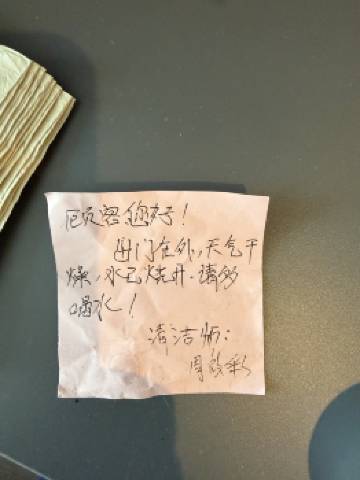 顾客您好!
出门在外,天气干
燥,水已烧开.请多
喝水!
清洁师:
周